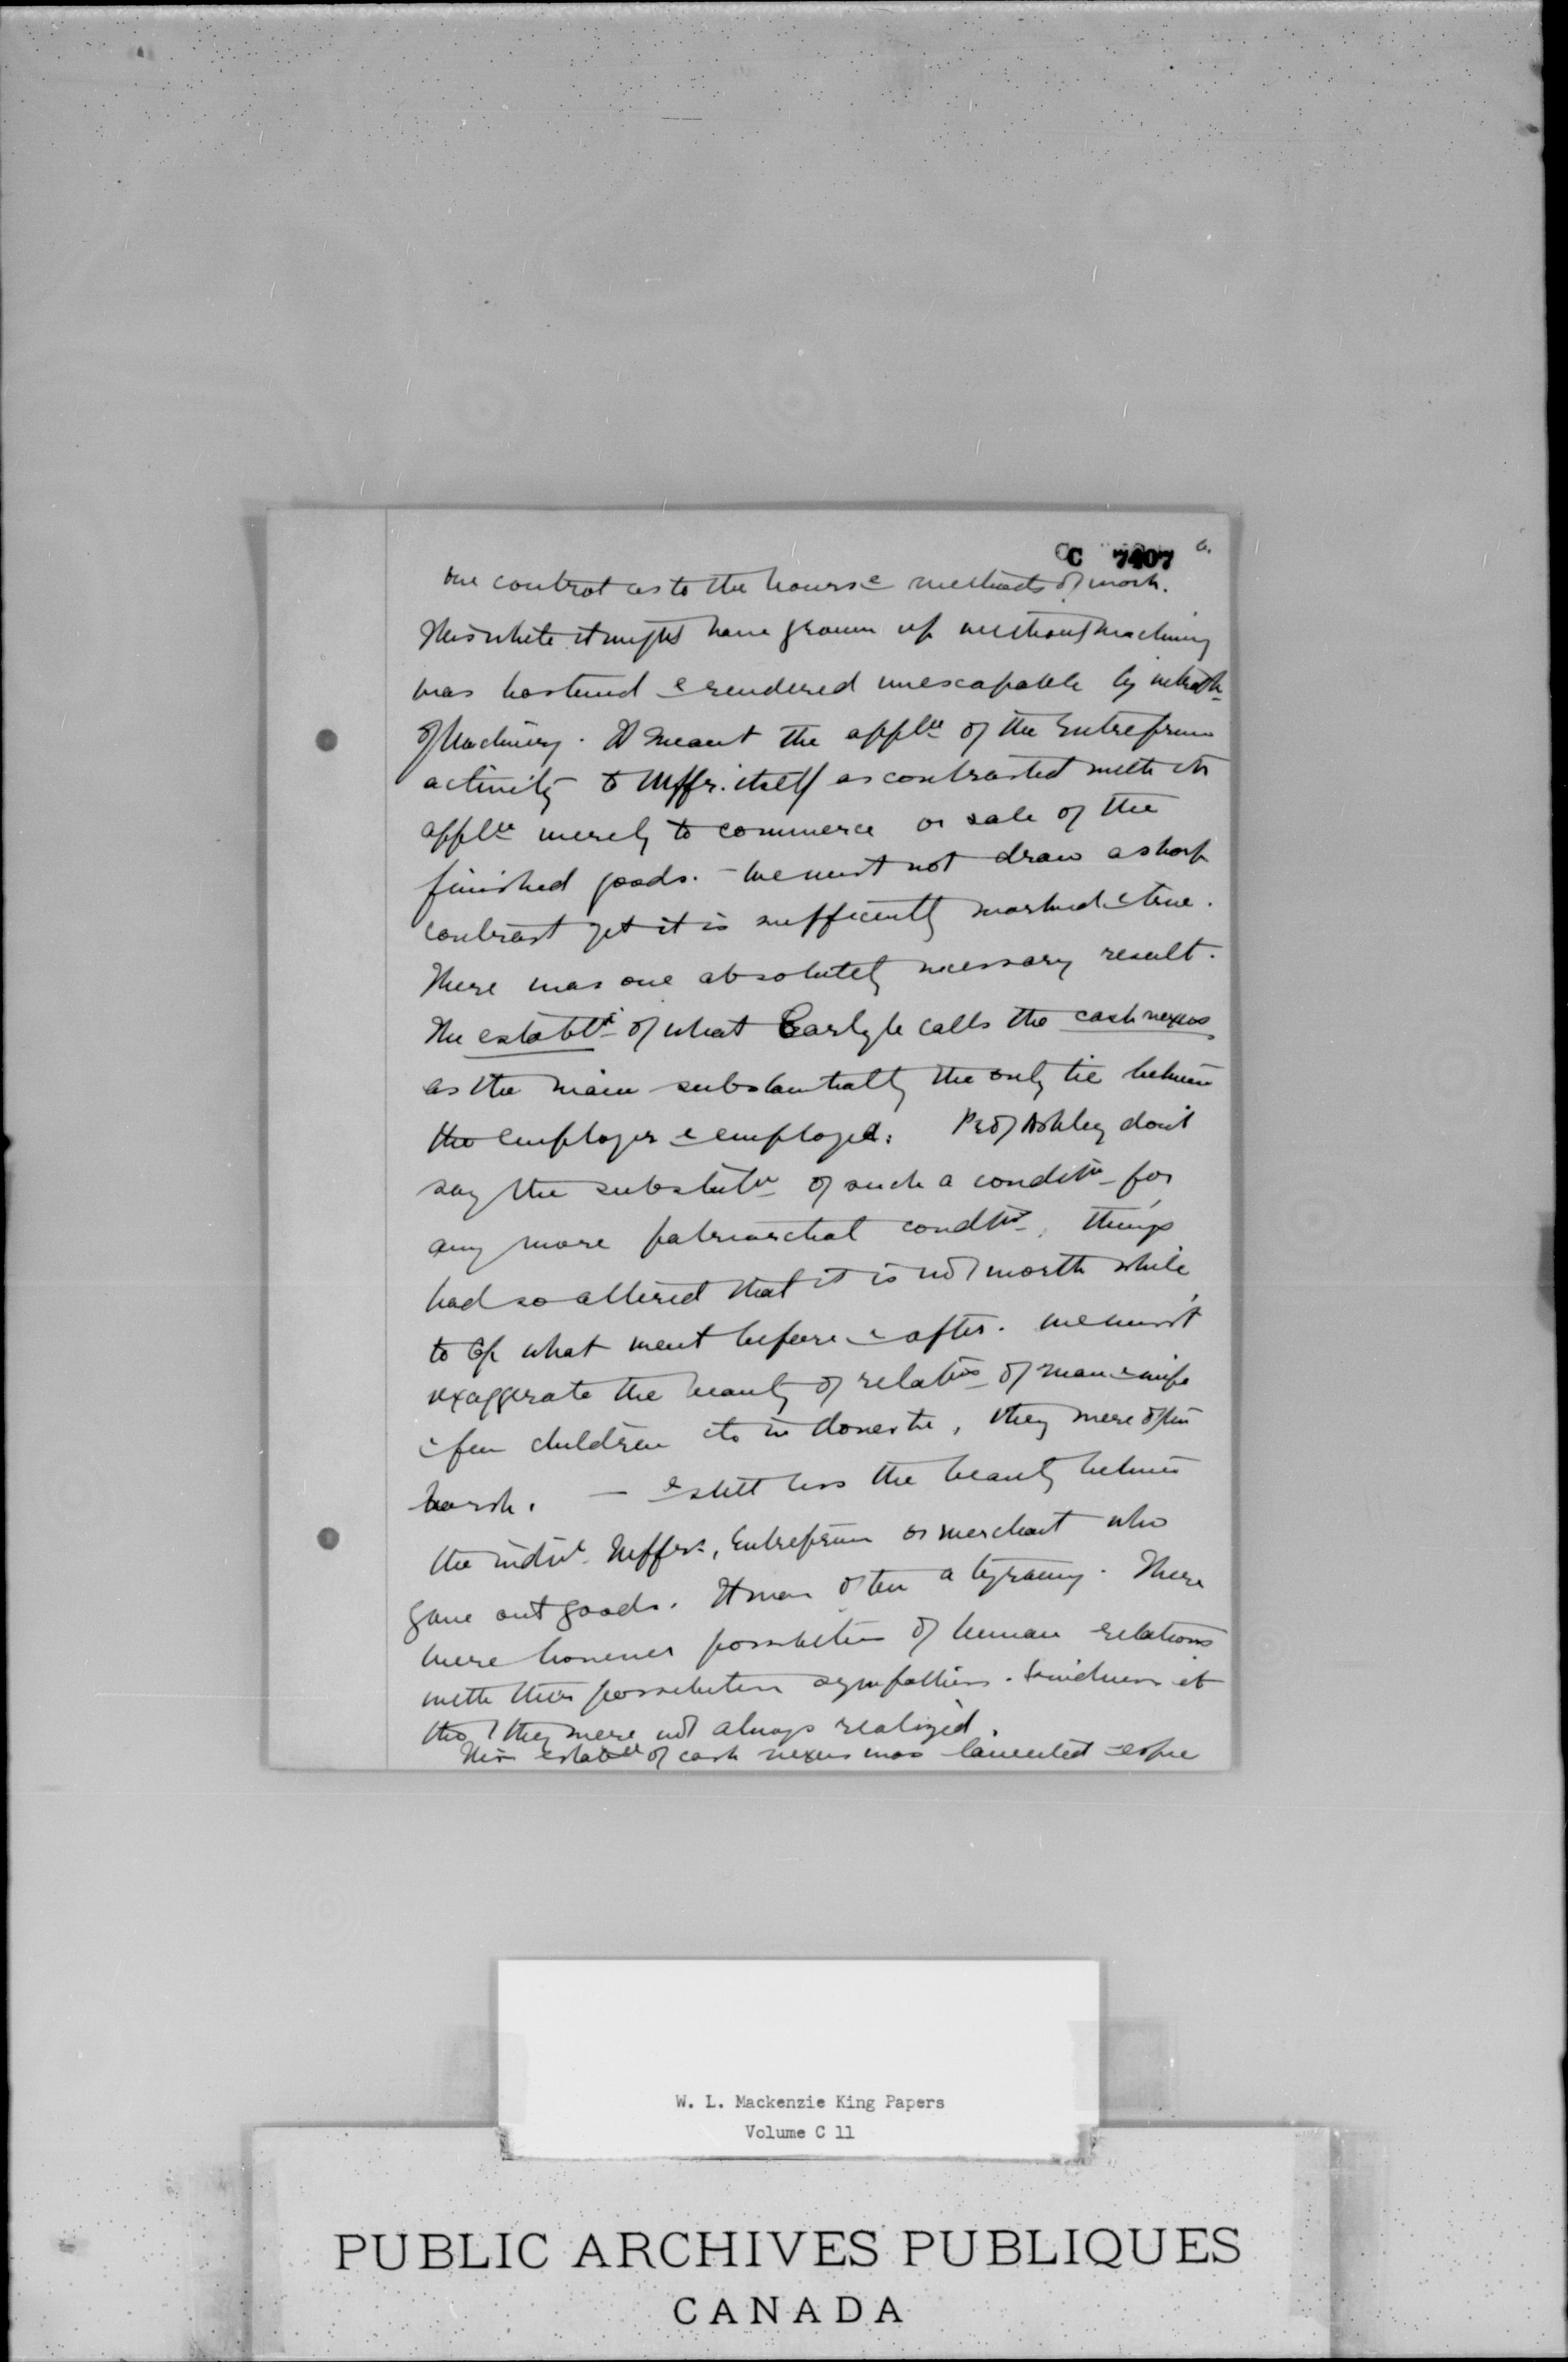 C 7407
6.
one control as to the hours & methods of work.
This while it might have grown up without machinery
was hastened & rendered unescapable by introdtn
of Machinery. It meant the appltn of the Entrepreneur
activity to Mffr. itself as contrasted with its
appltn merely to commerce or sale of the
finished goods. - We must not draw a sharp
contrast yet it is sufficiently marked & true.
There was one absolutely necessary result.
The establt of what Carlyle calls the cash nexus
as the main substantially the only tie between
the employer & employed. Prof Ashley don't
say the substitn of such a conditn for
any more patriarchal condtn, things
had so altered that it is not worth while
to what went before & after. we mus'nt
exaggerate the beauty of relatns of man & wife
& few children etc in domestic, they were often
harsh. — & still less the beauty between
the indivl Mffrs, Entrepreneur or merchant who
gave out goods. It was often a tyranny. There
were however possibilities of human relations
with their possibilities sympathies. kindness etc
tho' they were not always realized.
This establt of cash nexus was lamented
W. L. Mackenzie King Papers
Volume C 11
PUBLIC ARCHIVES PUBLIQUES
CANADA